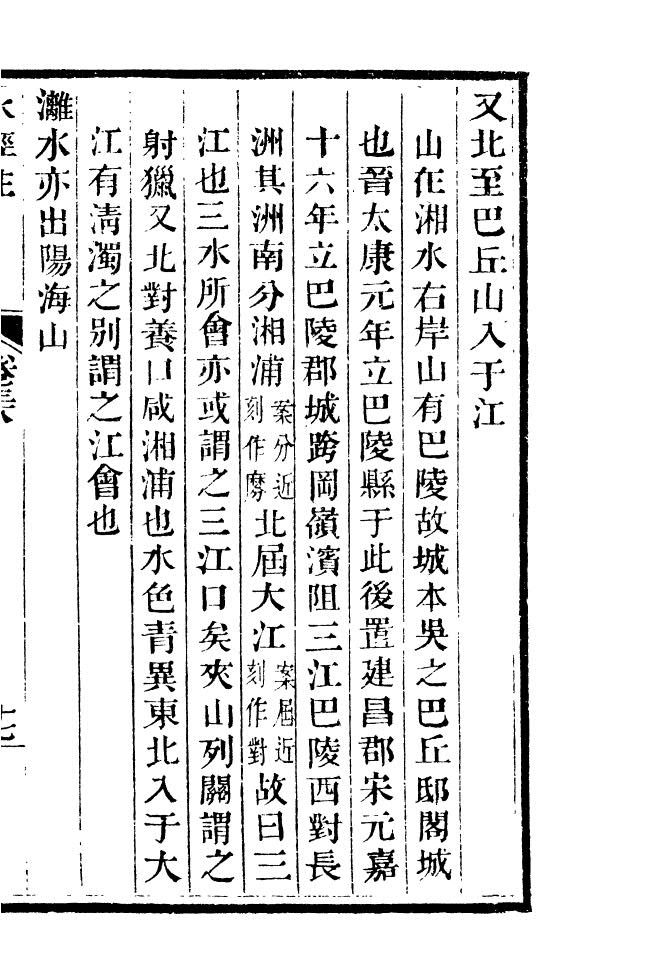 又北至巴丘山入于江
山在湘水右岸山有巴陵故城本吳之巴丘邸閣城
也晉太康元年立巴陵縣于此後置建昌郡宋元嘉
十六年立巴陵郡城跨岡嶺濱阻三江巴陵西對長
洲其洲南分湘浦案分近刻作麋北屆大江案屆近刻作對故曰三
江也三水所會亦或謂之三江口矣夾山列關謂之
射獵又北對養口咸湘浦也水色青異東北入于大
江有淸濁之别謂之江會也
灕水亦出陽海山
水經注
卷三